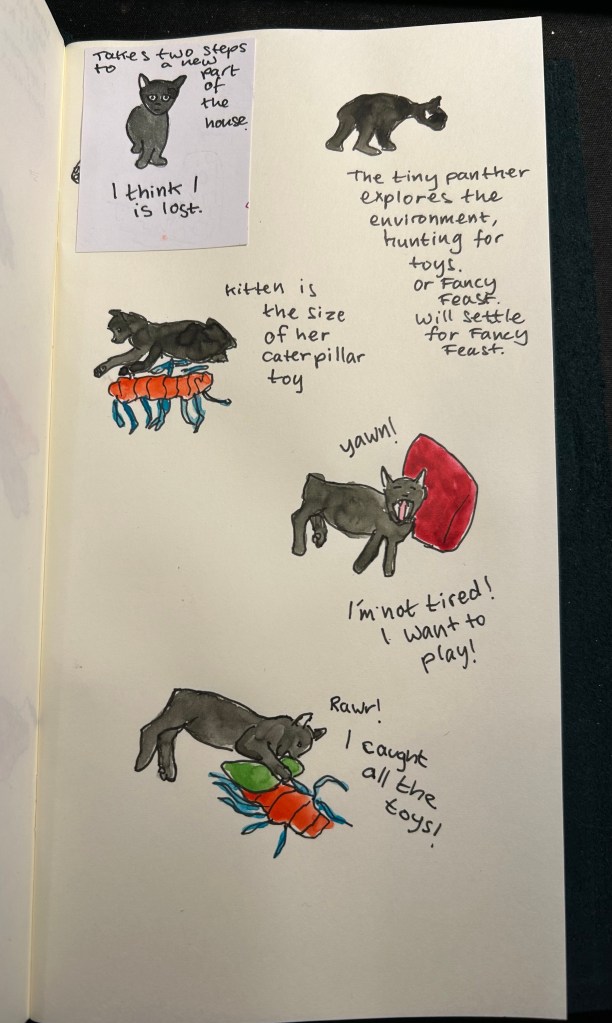 Takes two steps
to a new
part
of
the
house.
I think I
is lost.
The tiny panther
explores the
environment,
hunting for
toys.
Or Fancy
Feast.
Will settle
for Fancy
Feast.
Kitten is
the size
of her
caterpillar
toy
yawn!
I'm not tired!
I want to
play!
Rawr!
I caught
all the
toys!